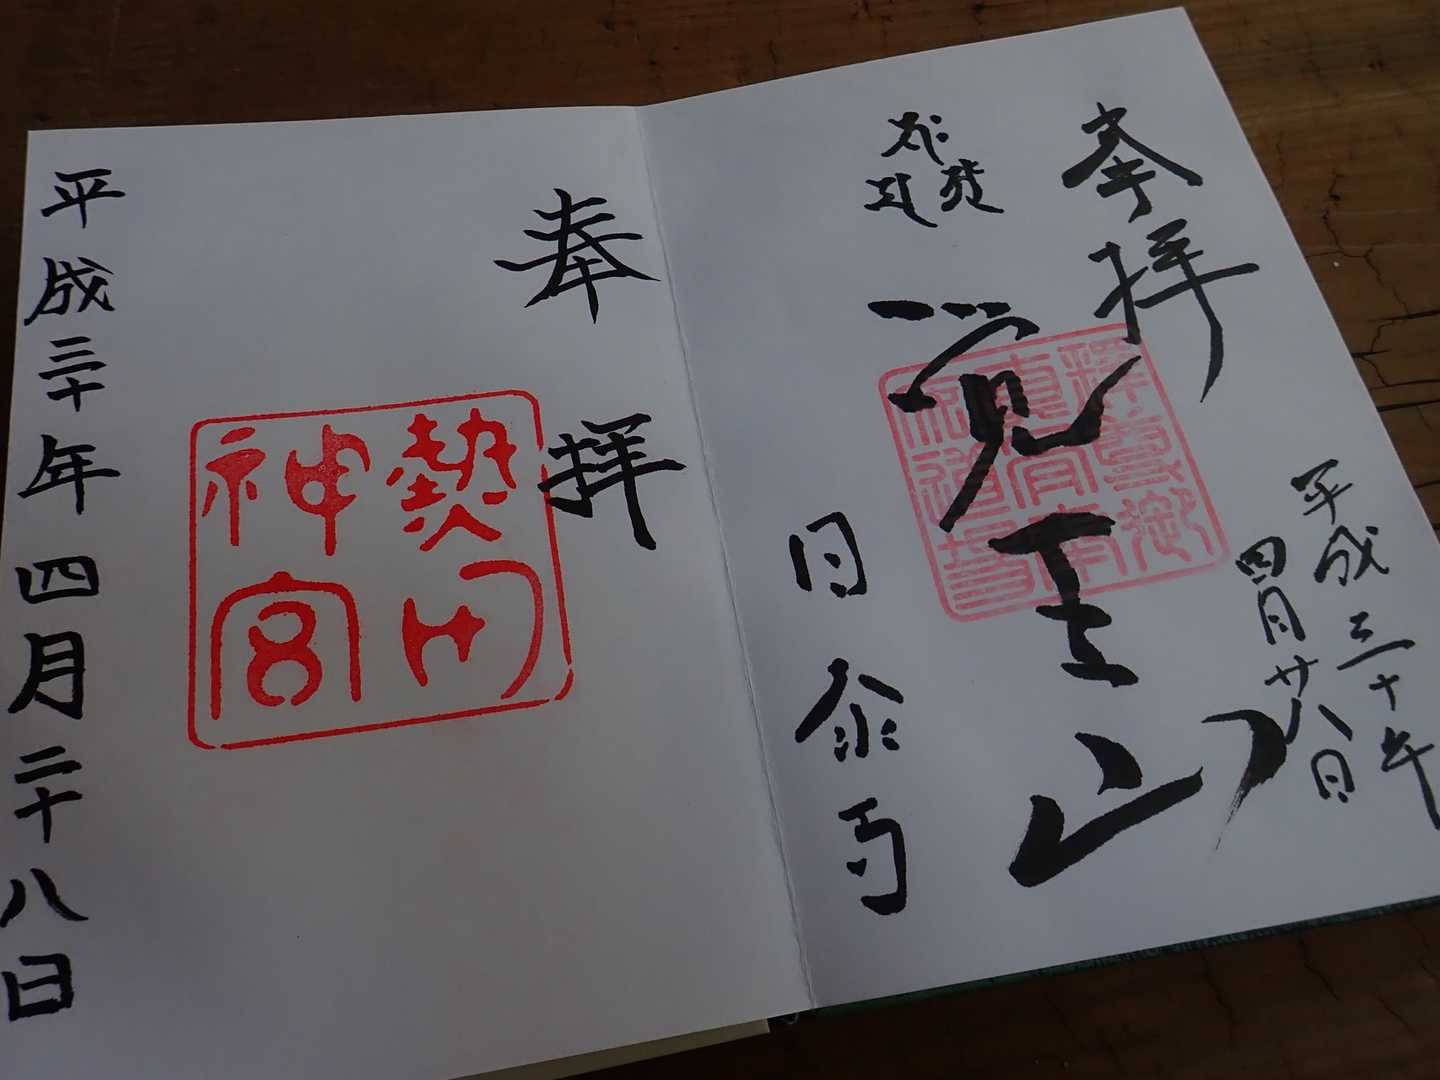 奉拝
平成三十年
四月廿八日
覚王山
日泰寺
釋尊御
道場
奉拝
熱田
神宮
平成三十年四月二十八日